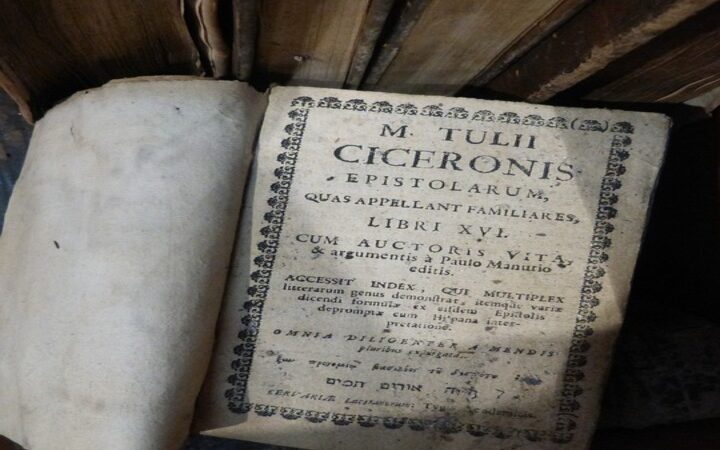 M. TULII
CICERONIS
EPISTOLARUM,
QUAS APPELLANT FAMILIARES,
LIBRI XVI.
CUM AUCTORIS VITA,
& argumentis à Paulo Manutio
editis.
ACCESSIT INDEX, QUI MULTIPLEX
litterarum genus demonstrat, itemque variæ
dicendi formulæ ex eisdem Epistolis
depromptæ cum Hispana inter-
pretatione.
OMNIA DILIGENTER A MENDIS
pluribus
CERVARIÆ